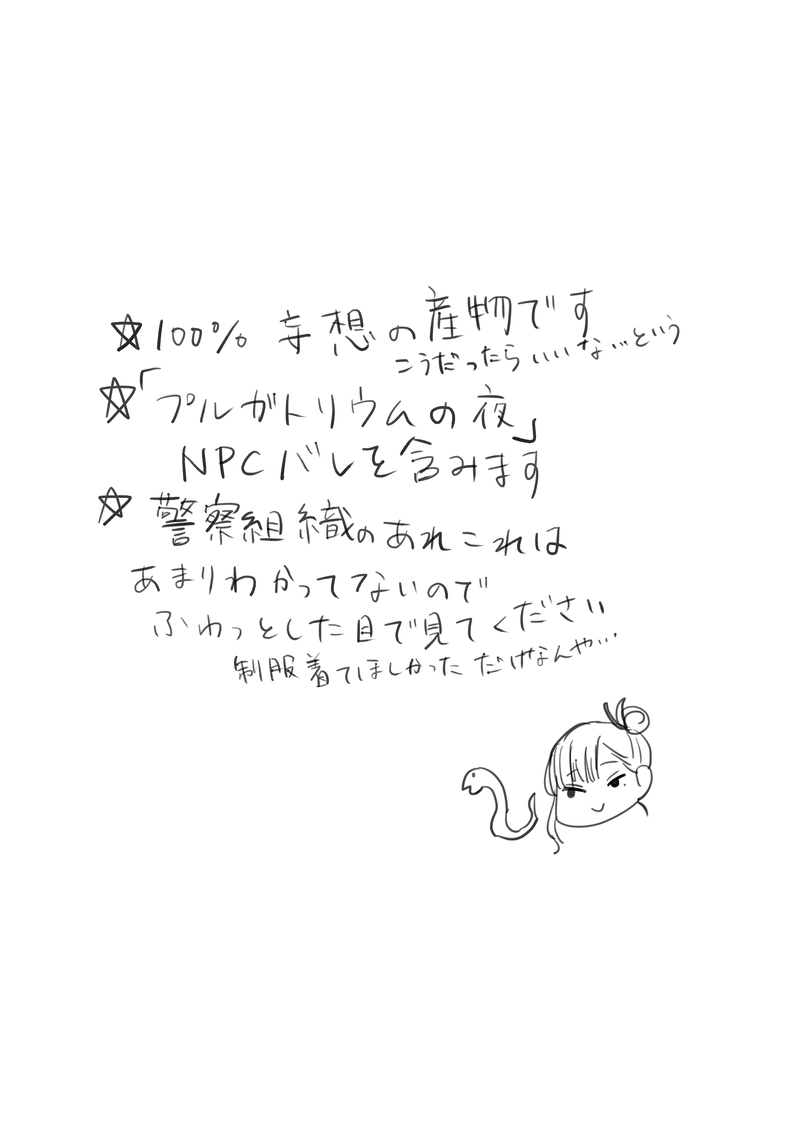 ☆100% 妄想の産物です
こうだったらいいな…という
☆「プルガトリウムの夜」
NPCバレを含みます
☆警察組織のあれこれは
あまりわかってないので
ふわっとした目で見てください
制服着てほしかっただけなんや…